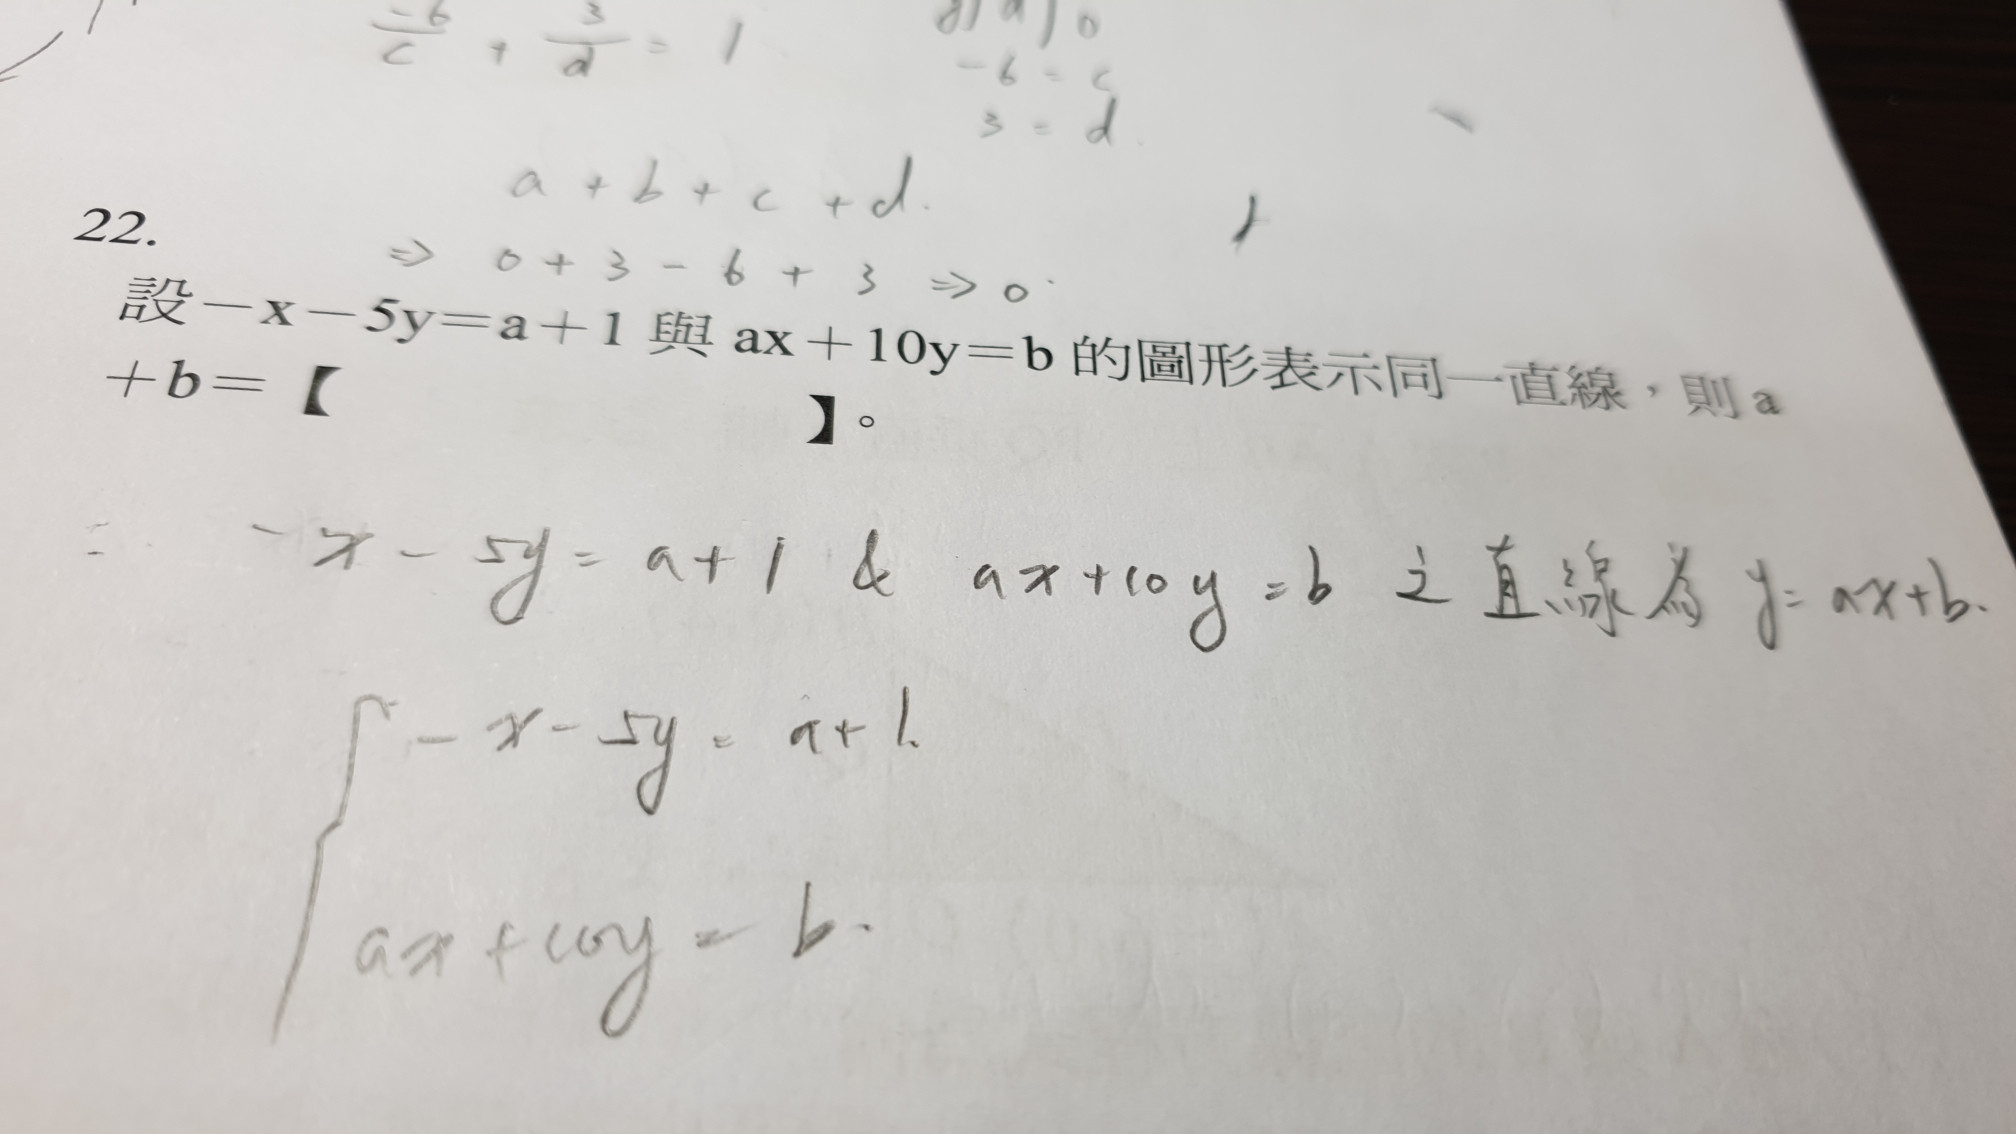 -6/c + 3/d = 1
-6 = c
3 = d.
a + b + c + d.
22.
⇒ 0 + 3 - 6 + 3 ⇒ 0
設－x－5y＝a＋1 與 ax＋10y＝b 的圖形表示同一直線，則 a
＋b＝【 】。
- x - 5y = a + 1 & ax + 10y = b 之直線為 y = ax + b.
- x - 5y = a + 1.
ax + 10y = b.